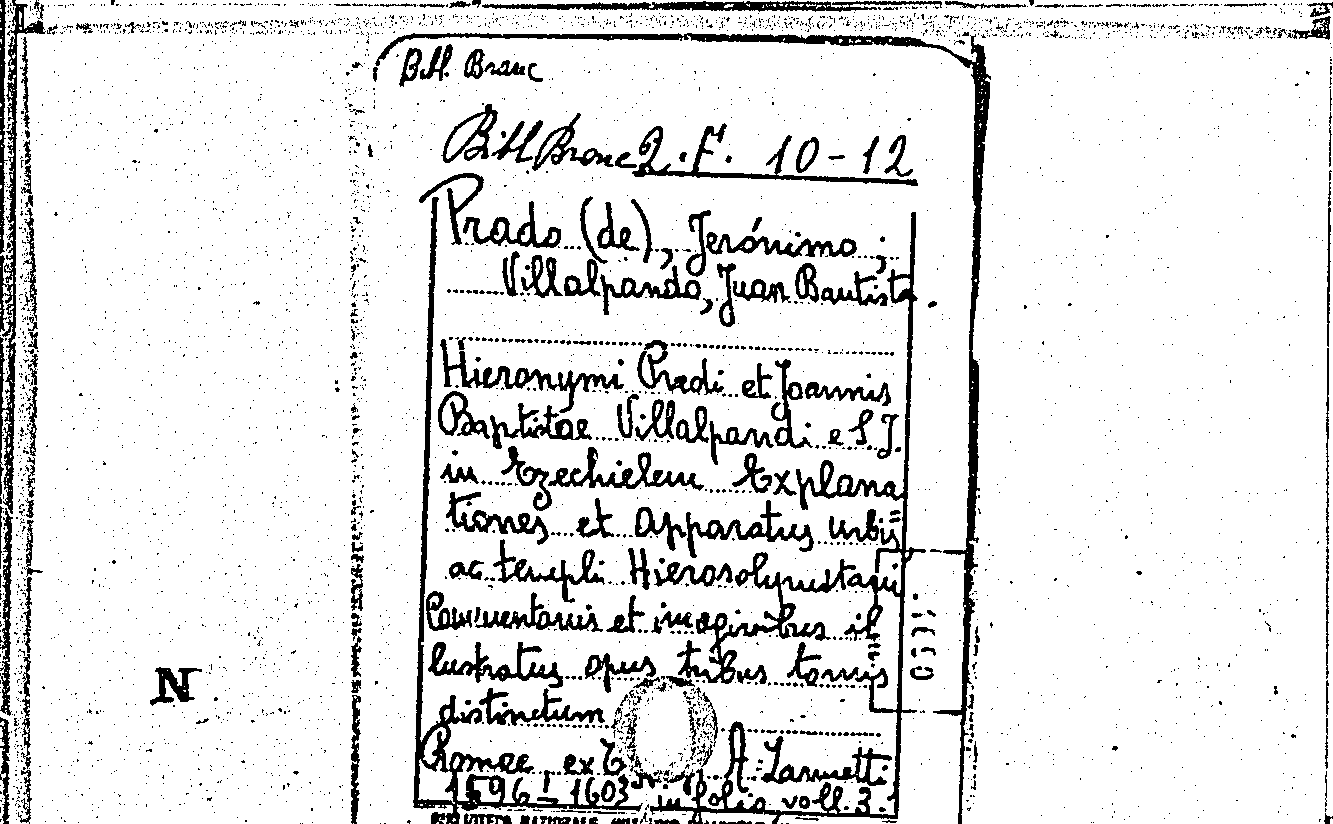 Bibl. Branc
Bibl Branc 2. F. 10-12
Prado (de), Jerónimo;
Villalpando, Juan Bautista.
Hieronymi Pradi et Joannis
Baptistae Villalpandi e S.J.
in Ezechielem Explana
tiones et apparatus urbis
ac templi Hierosolymitani
Commentariis et imaginibus il
lustratus opus tribus tomis
distinctum
Romae ex A. Zannetti
1596-1603 in folio voll. 3.
N